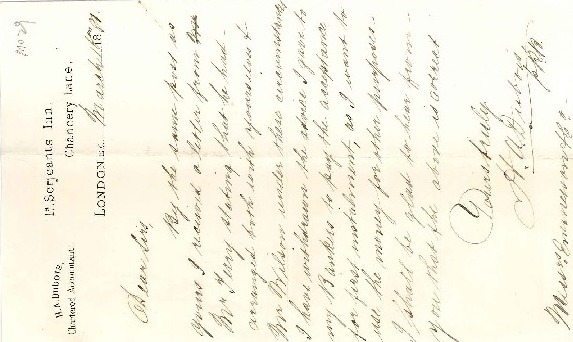 H.A. DUBOIS,
Chartered Accountant.
Serjeants Inn
Chancery Lane,
LONDON E.C. March 187
Dear Sirs
By the same post as
yours I received a letter from
Mr Terry stating that he had
arranged both with yourselves &
Mr Wilson under these circumstances
I have withdrawn the advice I gave to
my Bankers to pay the acceptance
for first instalment, as I want to
use the money for other purposes.
I shall be glad to hear from
you that the above is correct
Yours truly
H A Dubois
Messrs